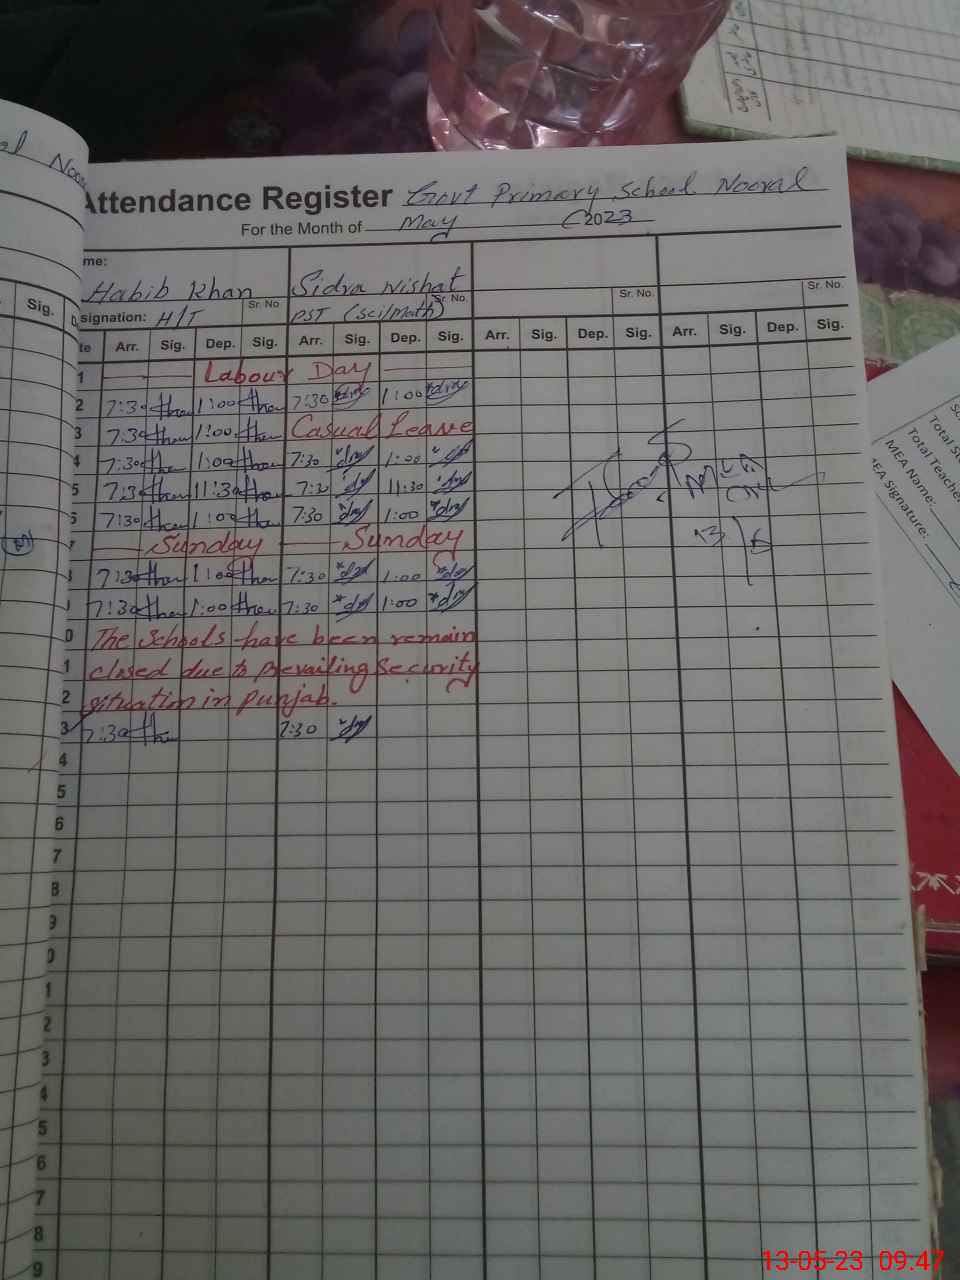 Attendance Register Govt Primary School Nooral
For the Month of May 2023
me:
Habib Khan Sidra Nishat
signation: H/T Sr. No PST (Sci/Math) Sr. No. Sr. No. Sr. No.
te Arr. Sig. Dep. Sig. Arr. Sig. Dep. Sig. Arr. Sig. Dep. Sig. Arr. Sig. Dep. Sig.
1 Labour Day
2 7:30 1:00 7:30 1:00
3 7:30 1:00 Casual Leave
4 7:30 1:00 7:30 1:00
5 7:30 11:30 7:30 11:30
6 7:30 1:00 7:30 1:00
7 Sunday Sunday
7:30 1:00 7:30 1:00
7:30 1:00 7:30 1:00
0 The Schools have been remain
1 closed due to prevailing security
2 situation in Punjab.
3 7:30 7:30
4
5
6
7
8
9
0
1
2
3
4
5
6
7
8
9
Sig.
Total Teache
MEA Name:
EA Signature:
13-05-23 09:47